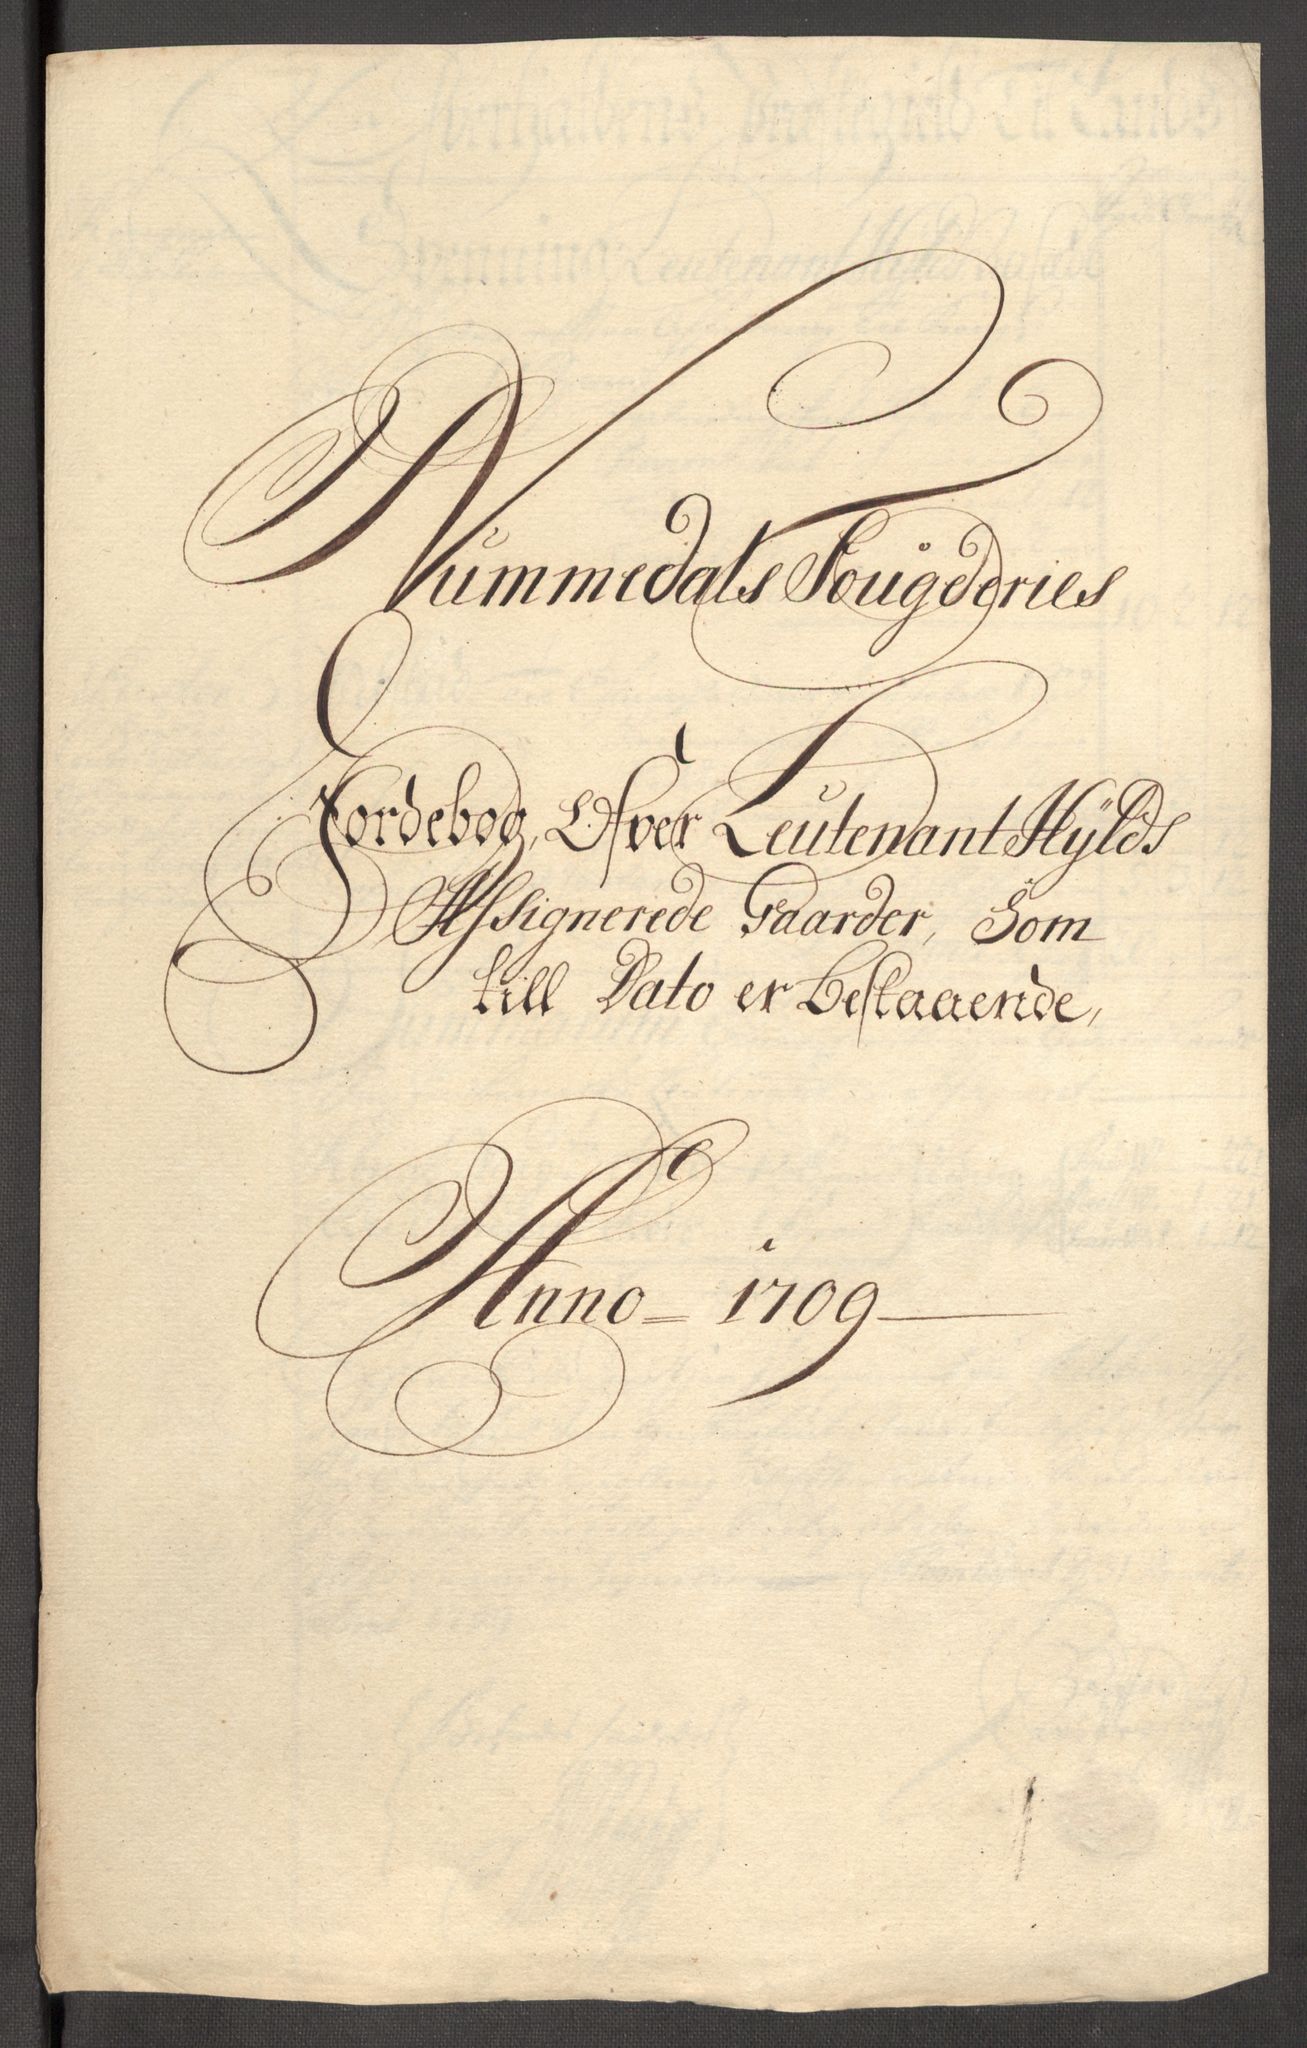 Nummedals Fougderies
Jordebog, Ofver Leutenant Hÿlds
Assignerede Gaarder, Som
till Dato er Bestaaende,
Anno = 1709